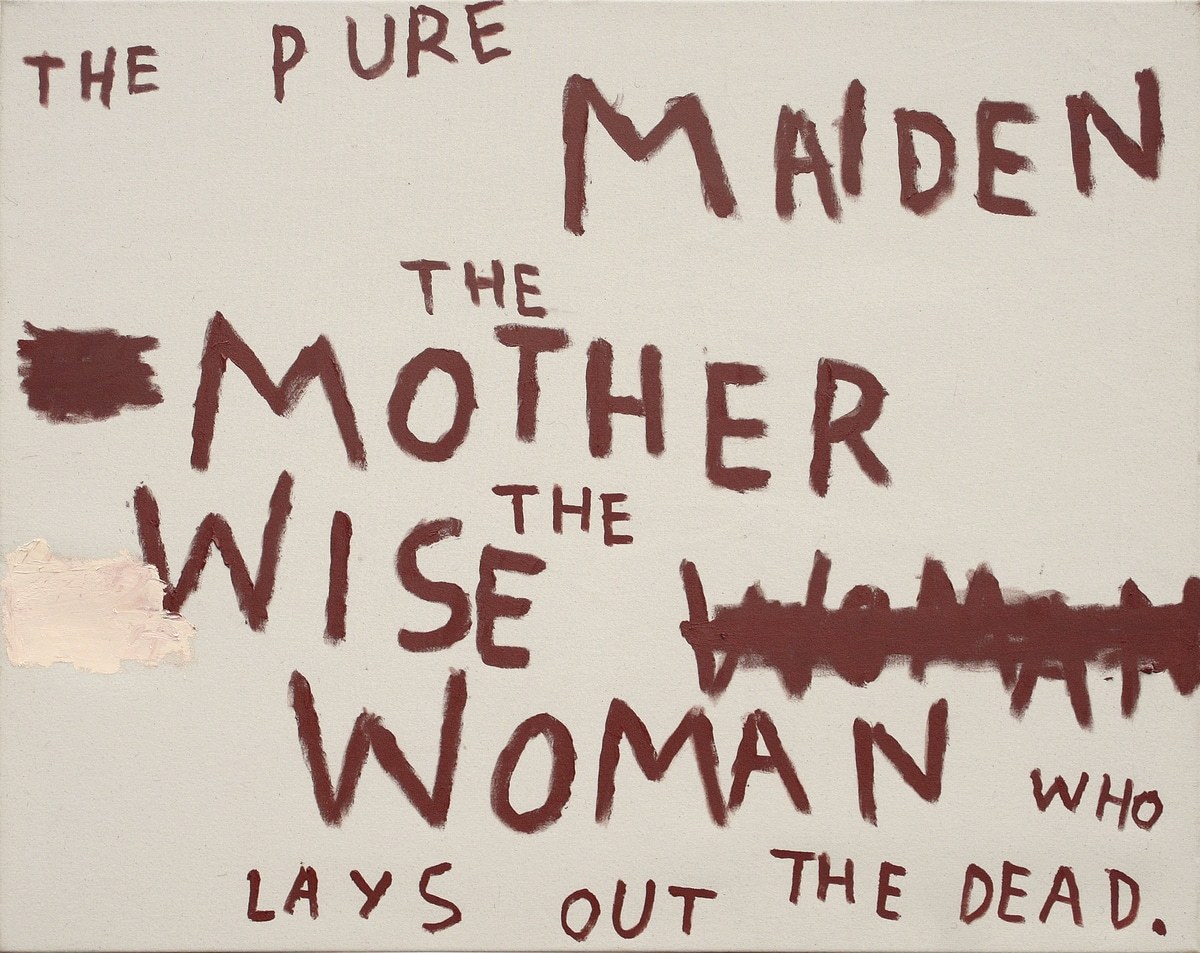 THE PURE
MAIDEN
THE
MOTHER
THE
WISE
WOMAN
WOMAN WHO
LAYS OUT THE DEAD.